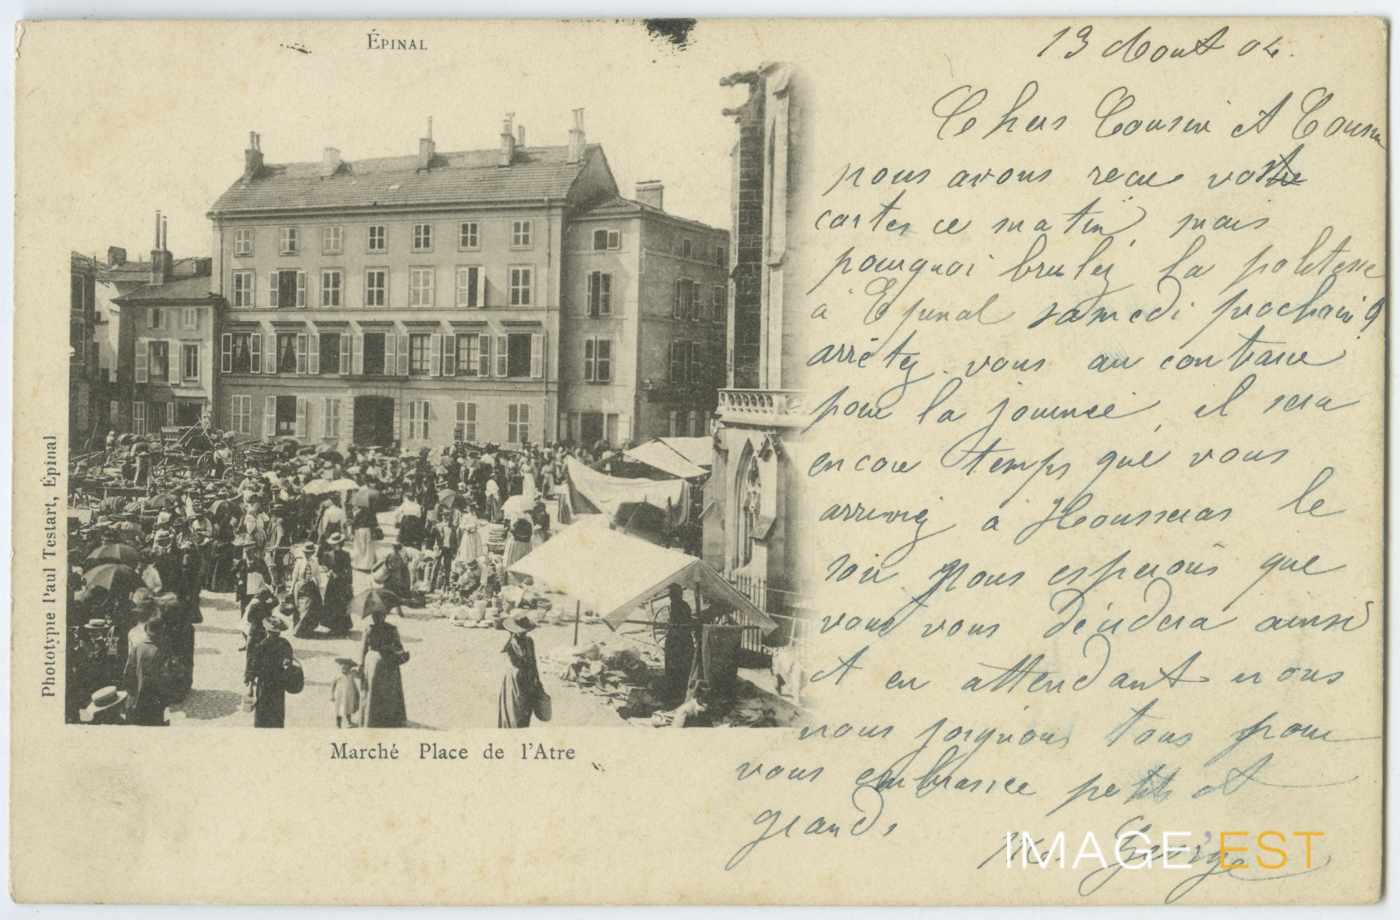 ÉPINAL
13 Aout 04.
Chers Cousin et Cousine
nous avons recu votre
cartes ce matin, mais
pourquoi brulez la politesse
à Epinal samedi prochain ?
arrêtez vous au contraire
pour la journée, il sera
encore temps que vous
arriviez à Housseras le
soir nous esperons que
vous vous décidera ainsi
et en attendant nous
nous joignons tous pour
vous embrassée petits et
grands
Phototypie Paul Testart, Épinal
Marché Place de l'Atre
IMAGE'EST